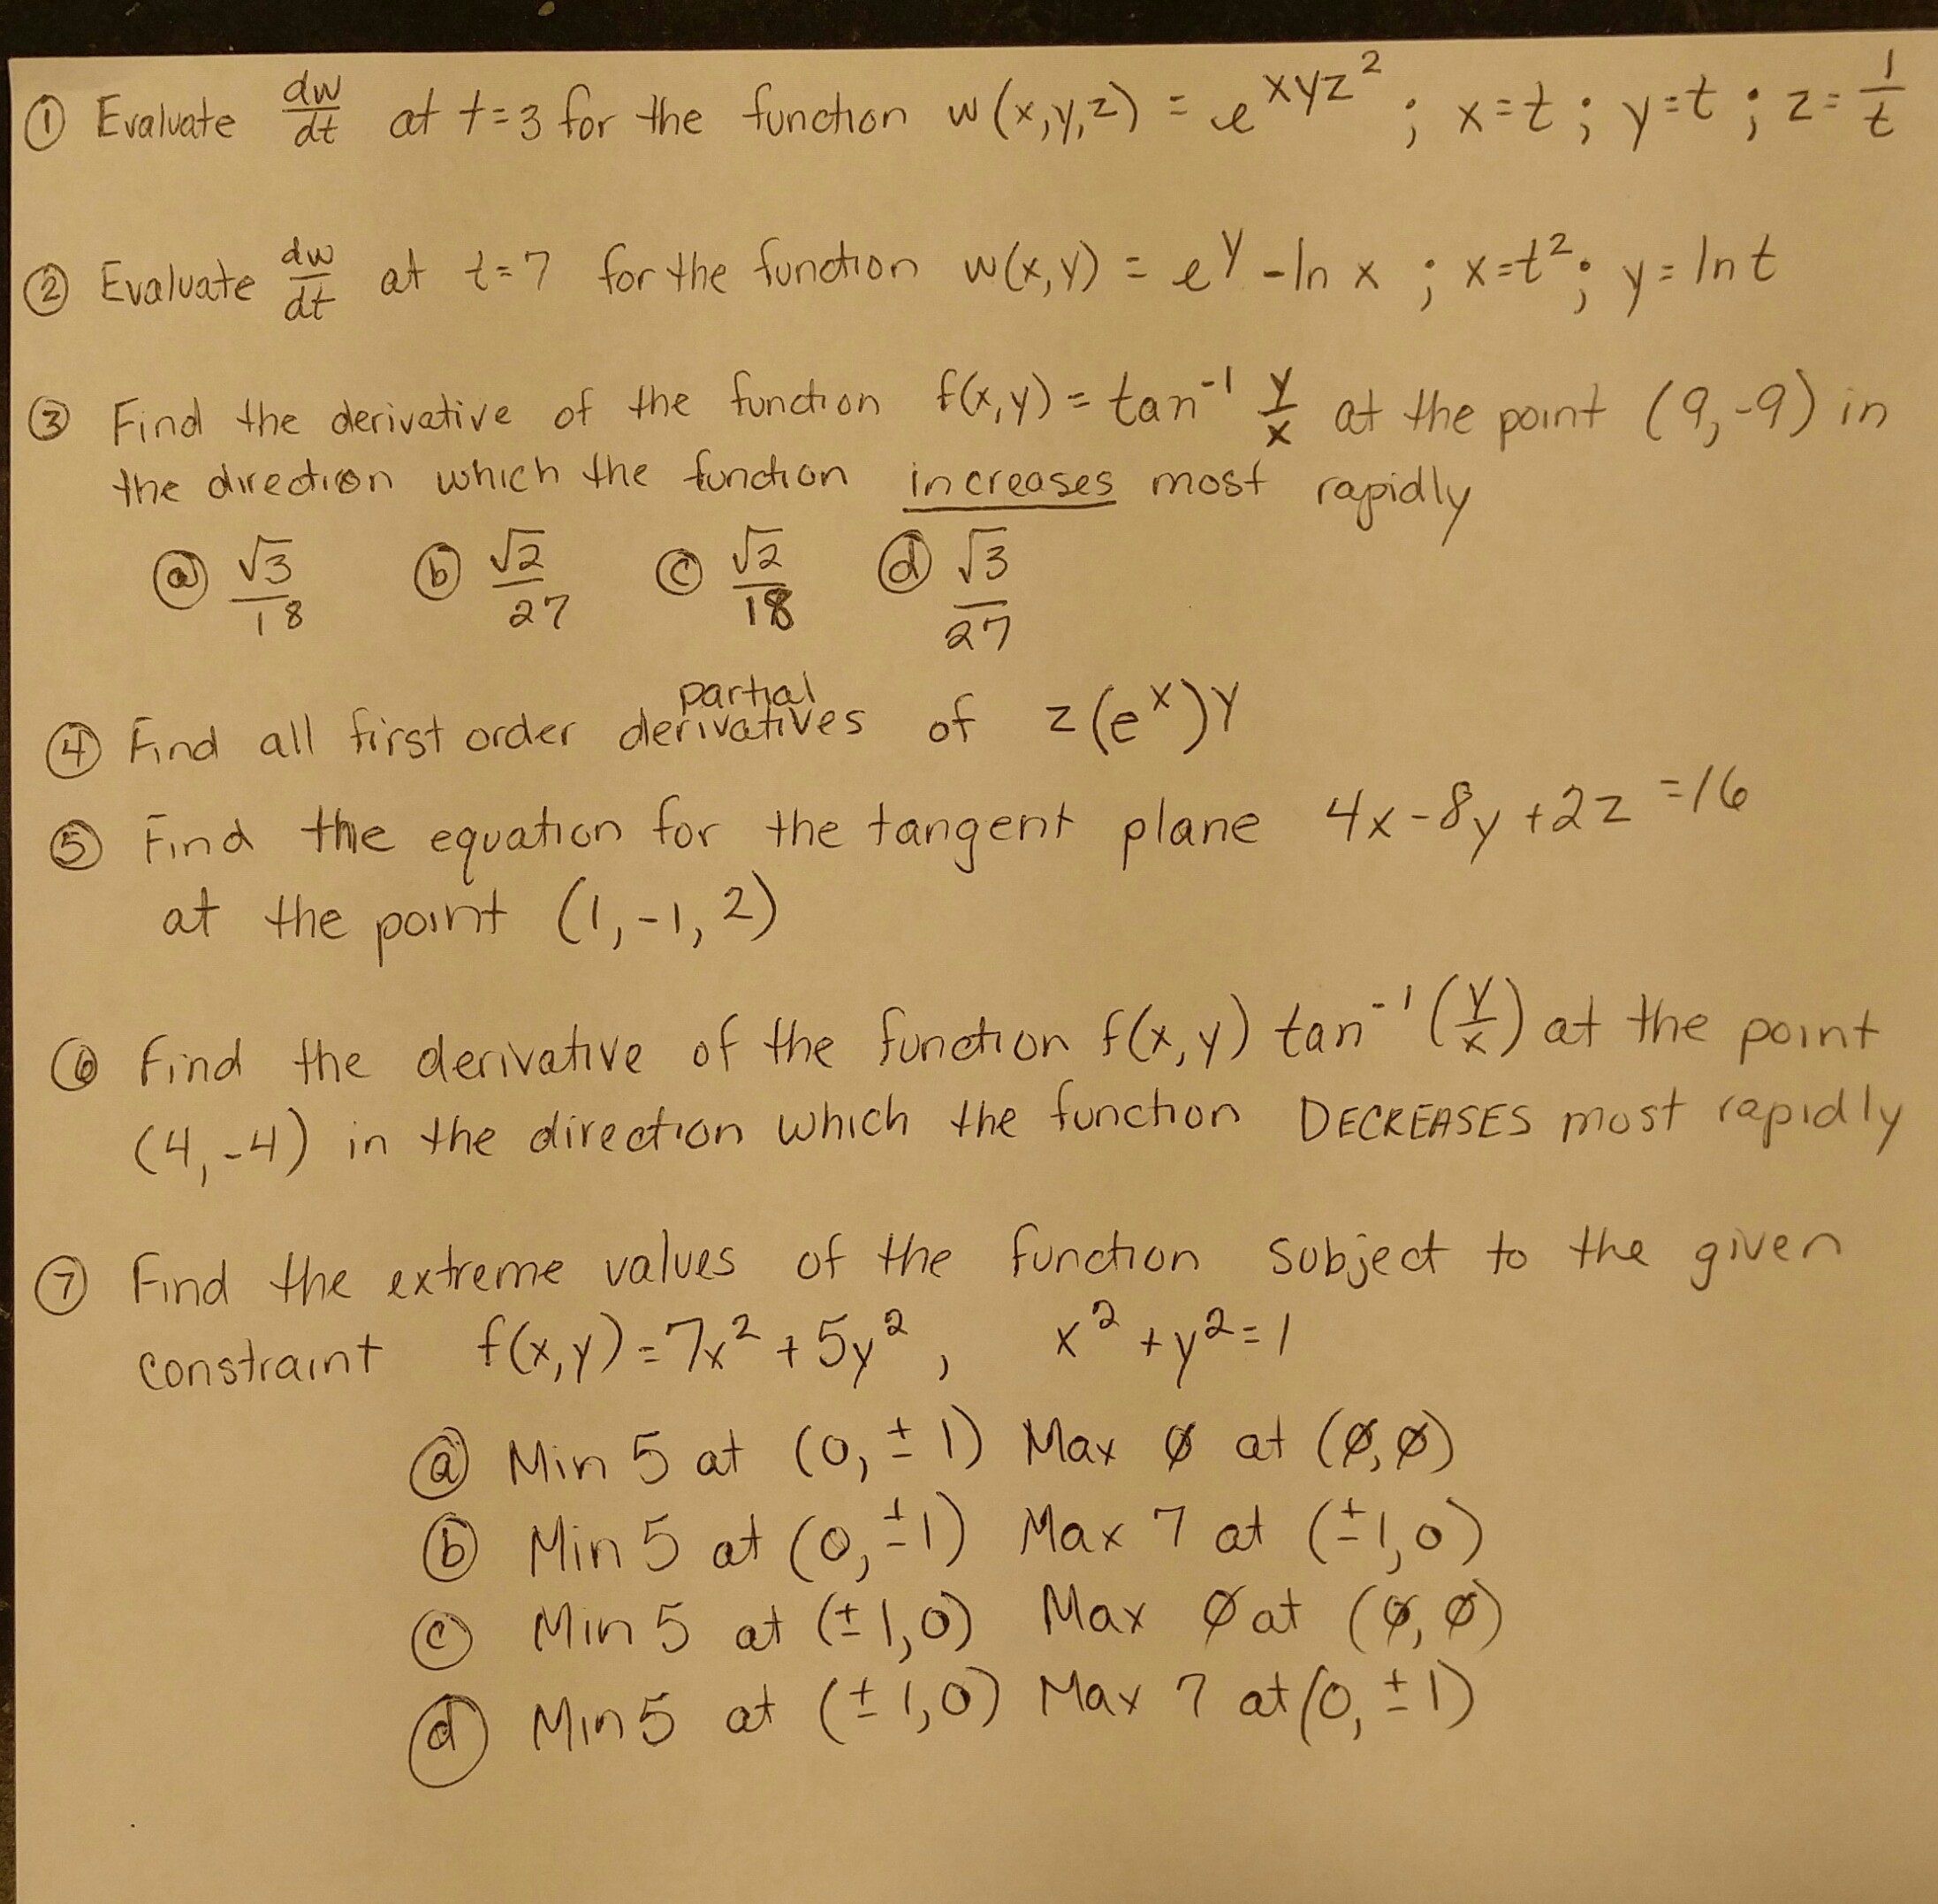 ① Evaluate dw/dt at t=3 for the function w(x,y,z) = e^xyz² ; x=t ; y=t ; z=1/t
② Evaluate dw/dt at t=7 for the function w(x,y) = e^y - ln x ; x=t² ; y= ln t
③ Find the derivative of the function f(x,y) = tan⁻¹ y/x at the point (9,-9) in
the direction which the function increases most rapidly
ⓐ √3/18 ⓑ √2/27 ⓒ √2/18 ⓓ √3/27
④ Find all first order partial derivatives of z(e^x)y
⑤ Find the equation for the tangent plane 4x-8y+2z=16
at the point (1,-1,2)
⑥ Find the derivative of the function f(x,y) tan⁻¹(y/x) at the point
(4,-4) in the direction which the function DECREASES most rapidly
⑦ Find the extreme values of the function subject to the given
constraint f(x,y)=7x²+5y², x²+y²=1
ⓐ Min 5 at (0,±1) Max Ø at (Ø,Ø)
ⓑ Min 5 at (0,±1) Max 7 at (±1,0)
ⓒ Min 5 at (±1,0) Max Ø at (Ø,Ø)
ⓓ Min 5 at (±1,0) Max 7 at (0,±1)